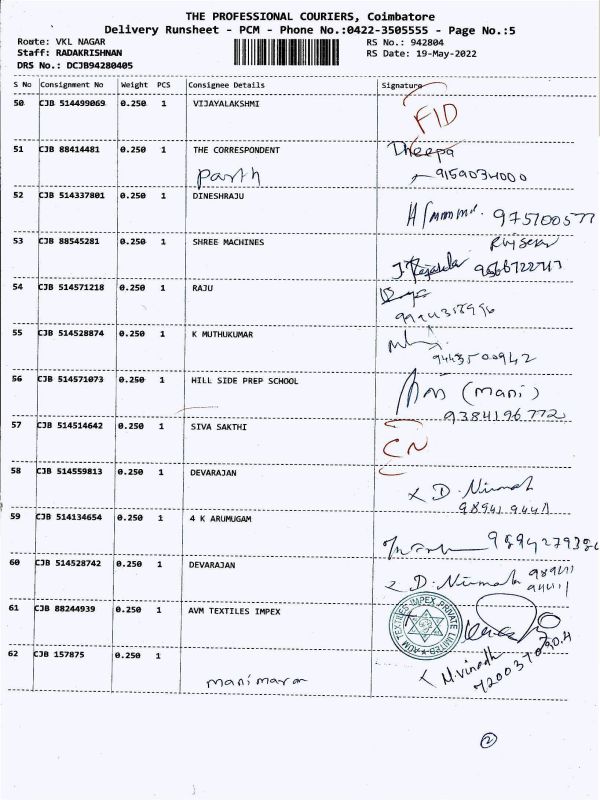 THE PROFESSIONAL COURIERS, Coimbatore
Delivery Runsheet - PCM - Phone No.:0422-3505555 - Page No.:5
Route: VKL NAGAR RS No.: 942804
Staff: RADAKRISHNAN RS Date: 19-May-2022
DRS No.: DCJB94280405
S No Consignment No Weight PCS Consignee Details Signature
50 CJB 514499069 0.250 1 VIJAYALAKSHMI
FID
51 CJB 88414481 0.250 1 THE CORRESPONDENT Dheepa
Parth 9159034000
52 CJB 514337801 0.250 1 DINESHRAJU
975100577
53 CJB 88545281 0.250 1 SHREE MACHINES
54 CJB 514571218 0.250 1 RAJU
55 CJB 514528874 0.250 1 K MUTHUKUMAR
9443500942
56 CJB 514571073 0.250 1 HILL SIDE PREP SCHOOL
(mani)
9384196772
57 CJB 514514642 0.250 1 SIVA SAKTHI
CN
58 CJB 514559813 0.250 1 DEVARAJAN
D. Nirmal
59 CJB 514134654 0.250 1 4 K ARUMUGAM
60 CJB 514528742 0.250 1 DEVARAJAN
D. Nirmal
61 CJB 88244939 0.250 1 AVM TEXTILES IMPEX
TEXTILES IMPEX PRIVATE LIMITED
62 CJB 157875 0.250 1
manimaran
N. Vinodh
2